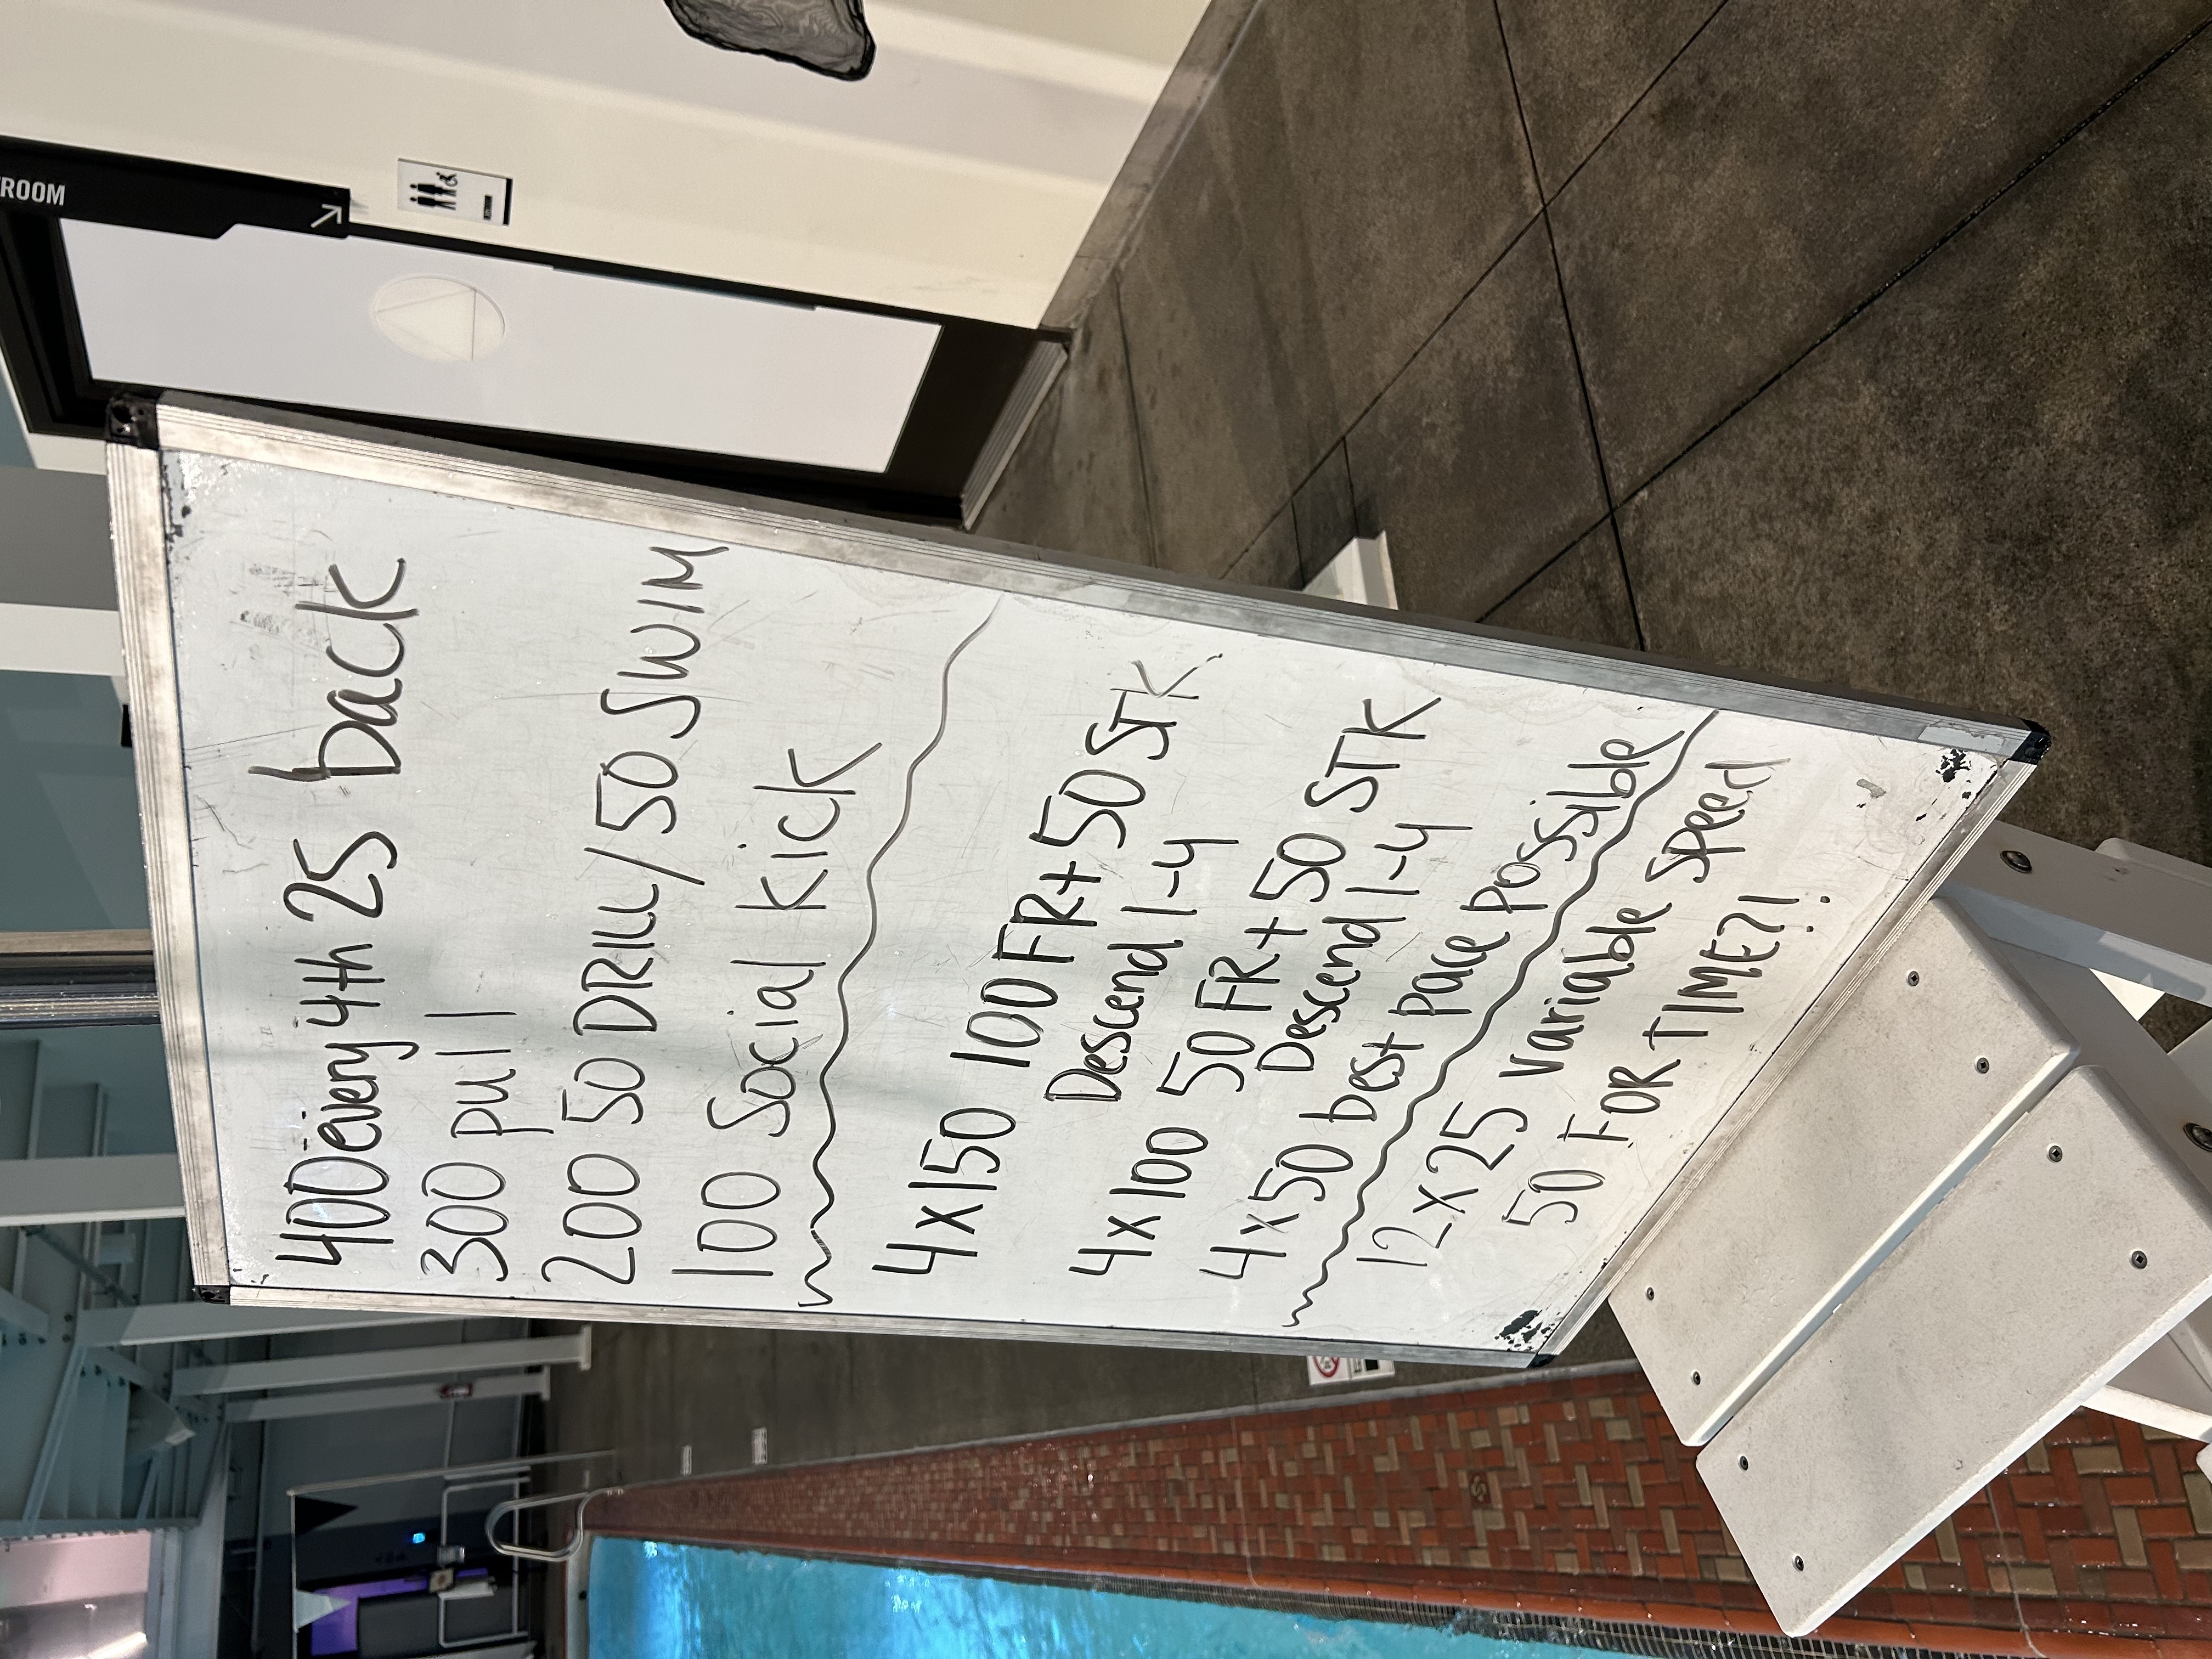 400 every 4th 25 back
300 pull
200 50 DRILL/50 SWIM
100 Social Kick
4x150 100 FR+50 STK
Descend 1-4
4x100 50 FR+50 STK
Descend 1-4
4x50 best pace possible
12x25 variable speed
50 FOR TIME?!
ROOM